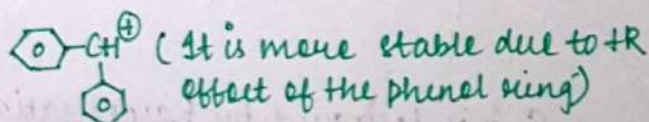 CH⊕ (It is more stable due to +R
effect of the phenol ring)